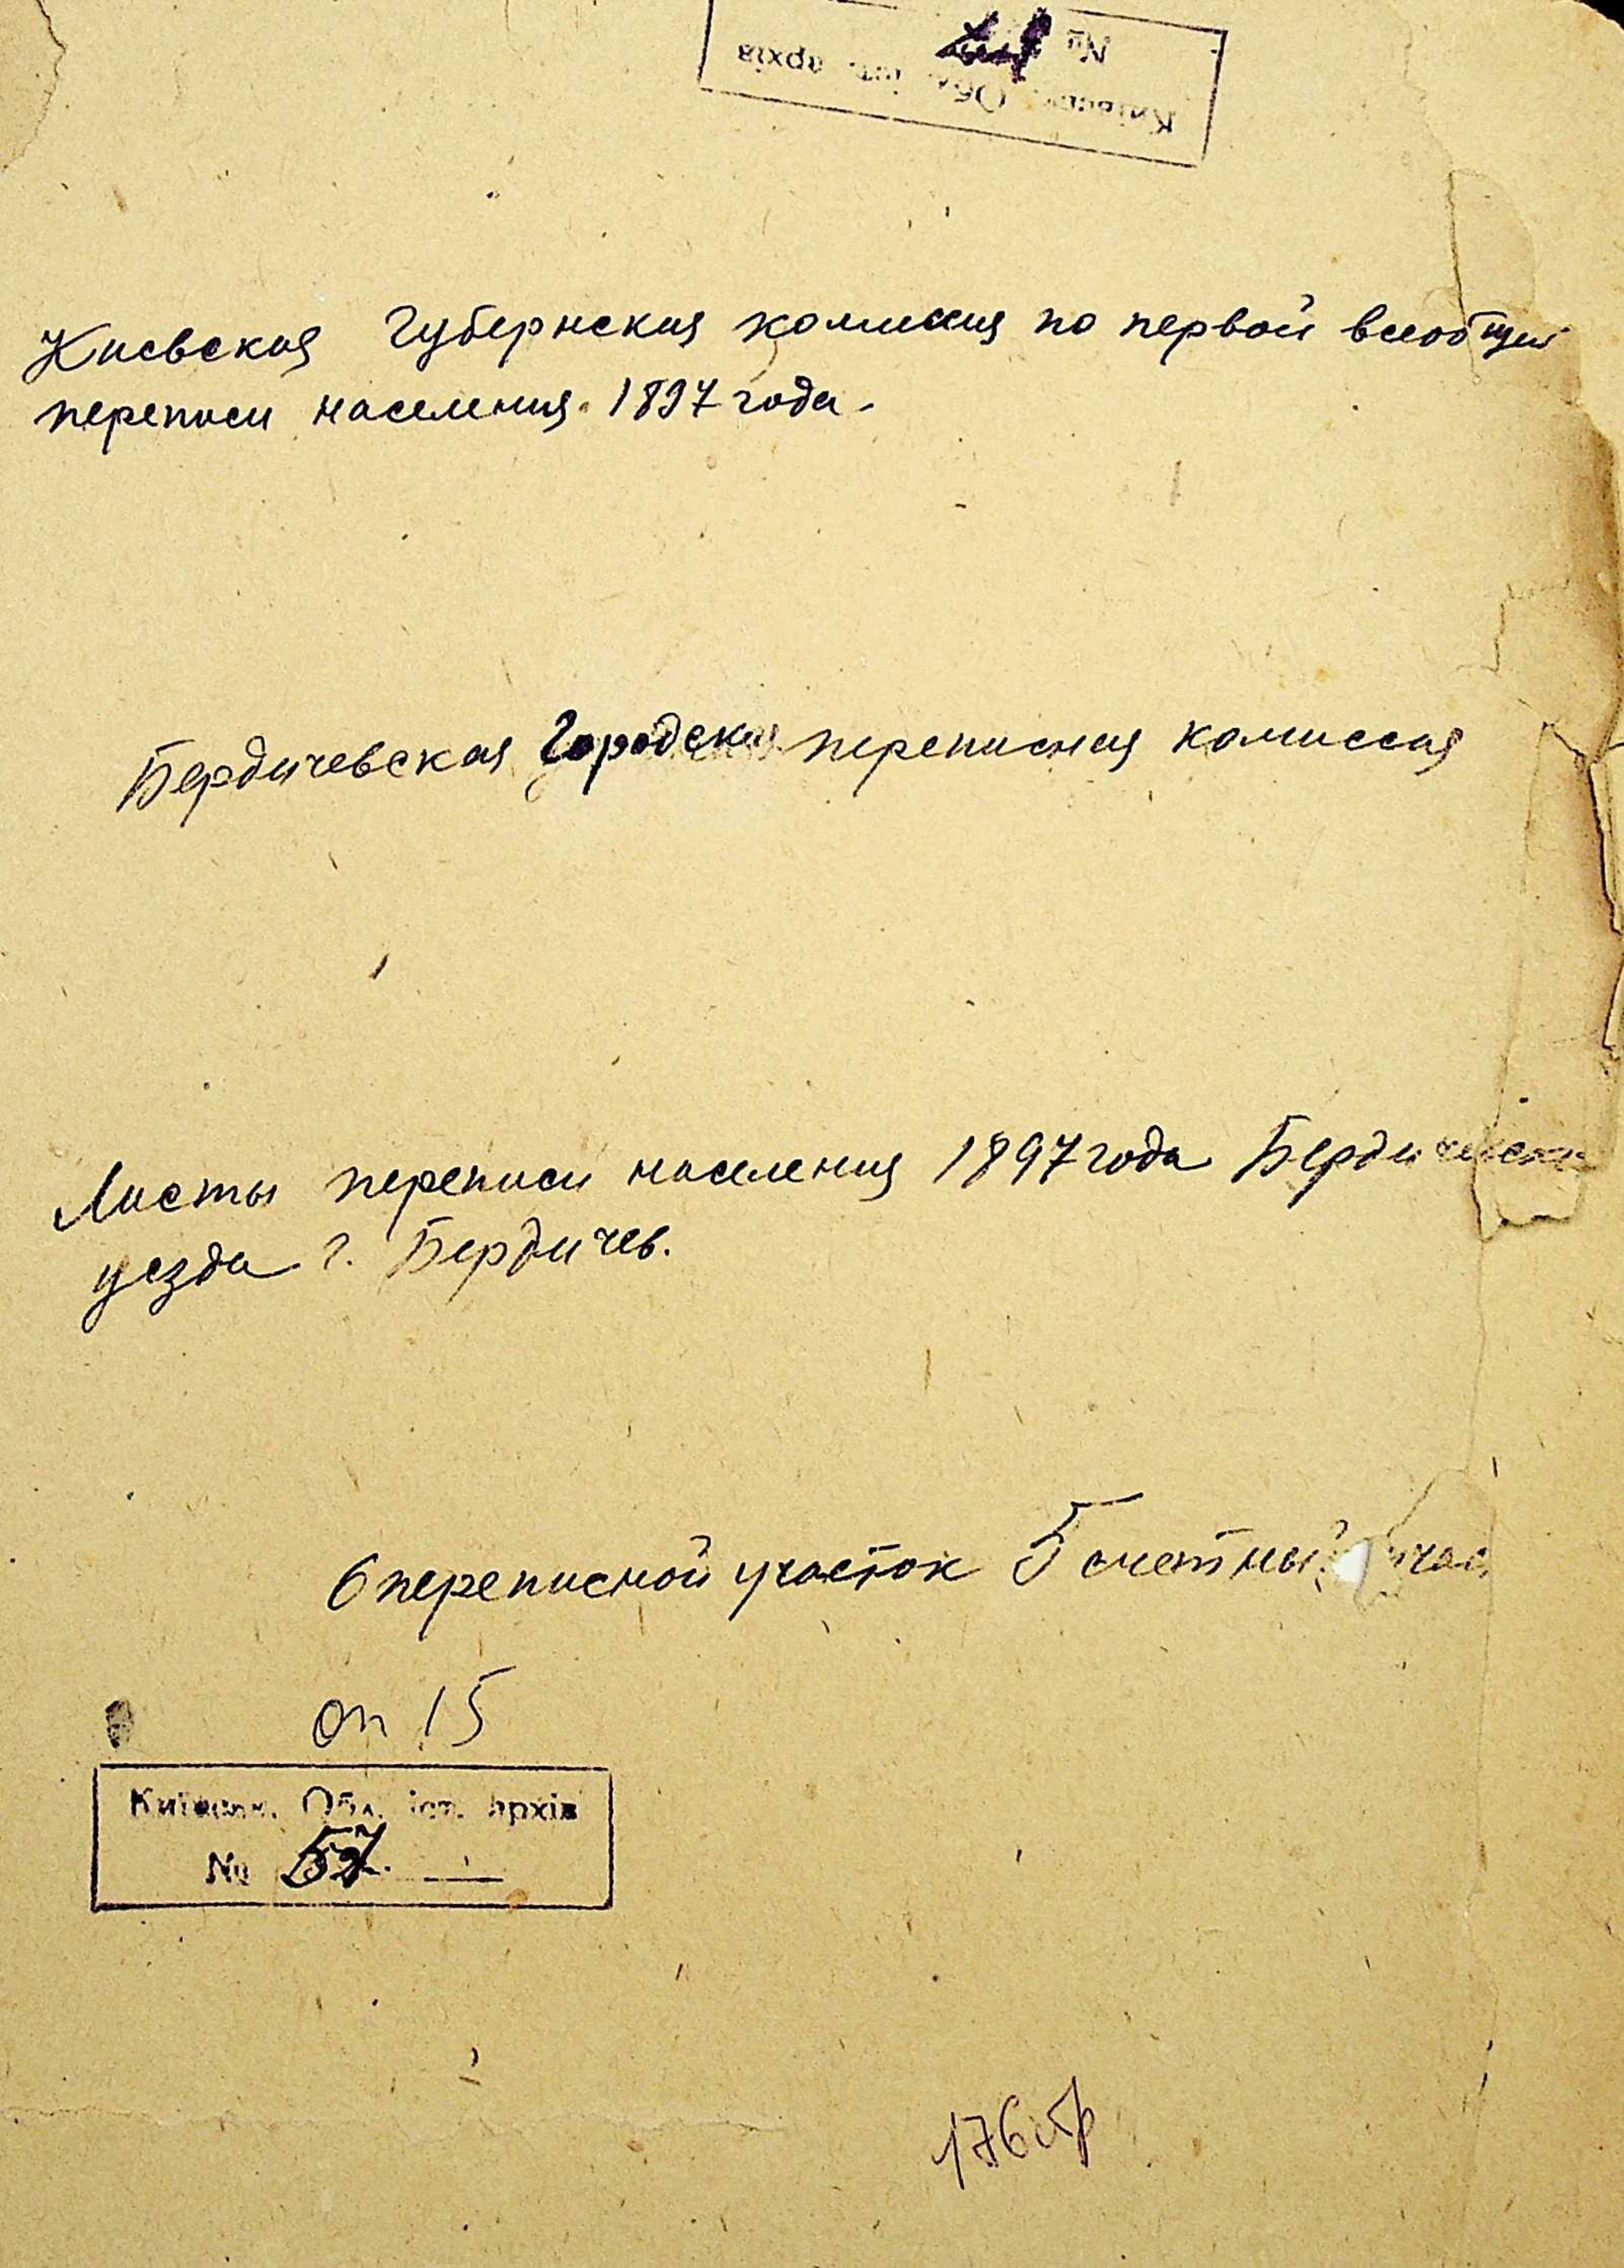 №
Київськ. Обл. іст. архів
Киевская Губернская комиссия по первой всеобщей
переписи населения 1897 года.
Бердичевская Городская переписная комиссия
Листы переписи населения 1897 года Бердичевск
уезда г. Бердичев.
6 переписной участок 5 счетный учас
оп 15
Київськ. Обл. іст. архів
№ 57.
176 стр